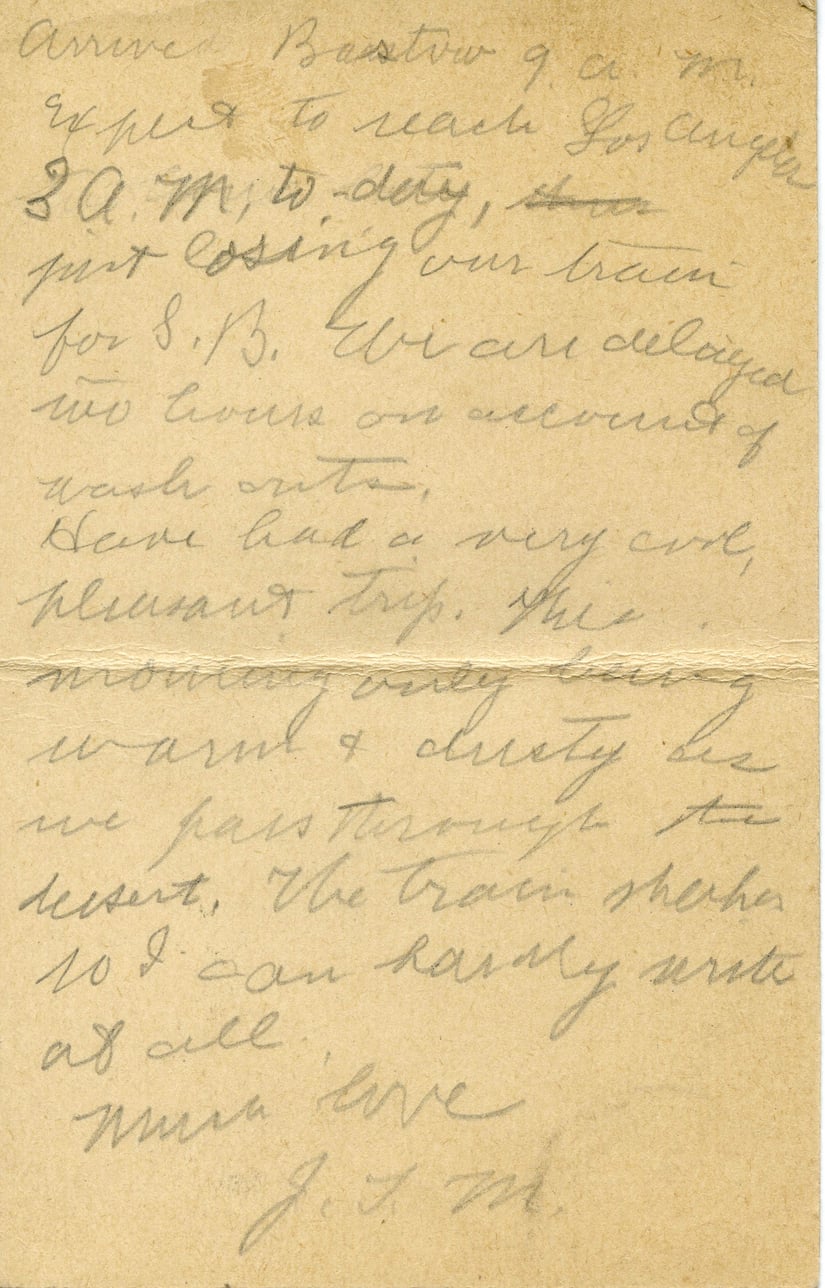 Arrived Barstow 9 a. m.
Expect to reach Los Angeles
3 A. M, to-day,
just losing our train
for S. B. We are delayed
two hours on account of
wash outs.
Have had a very cool,
pleasant trip. This
morning only being
warm & dusty as
we pass through the
desert. The train shakes
so I can hardly write
at all.
Much love
J. T. M.